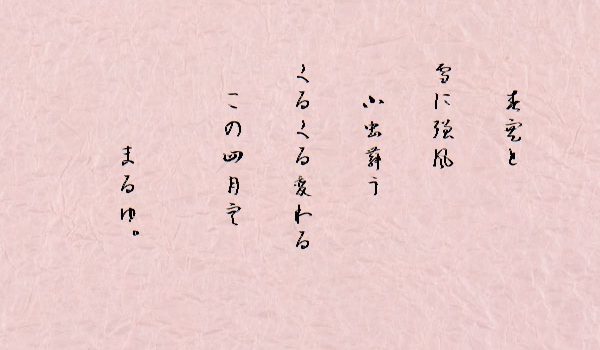 春寒と
雪に強風
小虫舞う
くるくる変わる
この四月空
まるゆ。